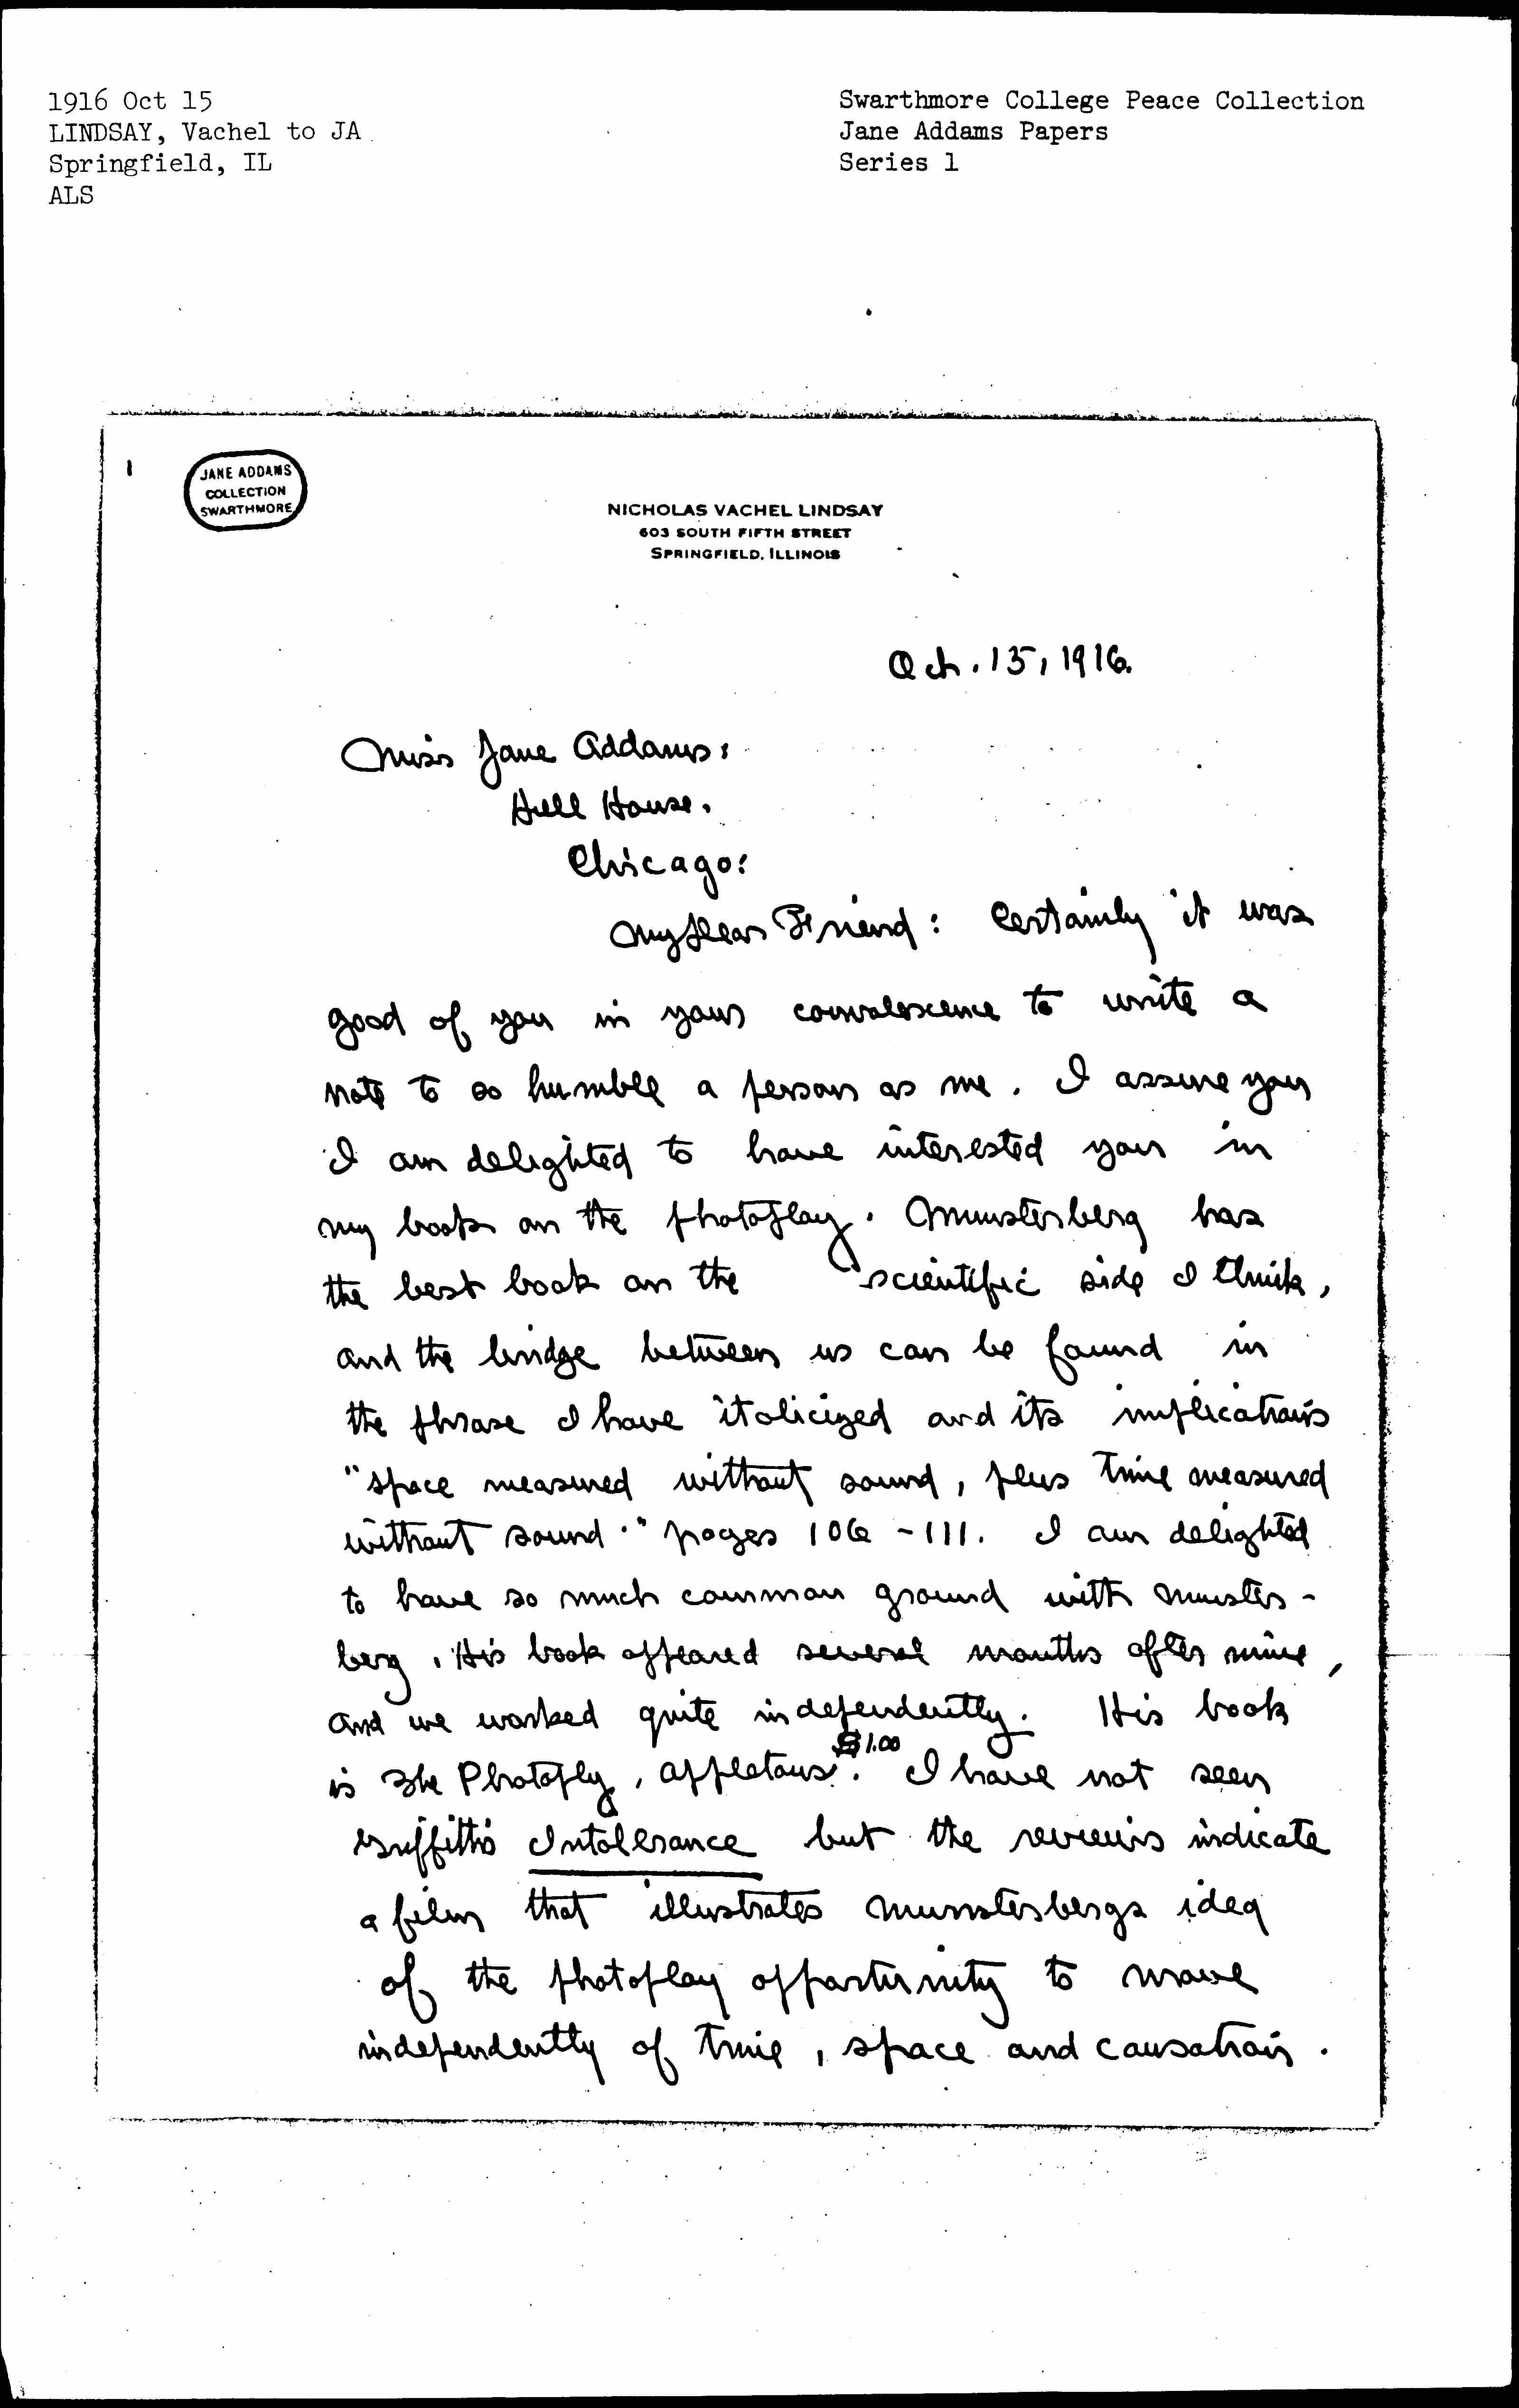 1916 Oct 15
LINDSAY, Vachel to JA
Springfield, IL
ALS
Swarthmore College Peace Collection
Jane Addams Papers
Series 1
1
JANE ADDAMS
COLLECTION
SWARTHMORE
NICHOLAS VACHEL LINDSAY
603 SOUTH FIFTH STREET
SPRINGFIELD, ILLINOIS
Oct. 15, 1916.
Miss Jane Addams:
Hull House.
Chicago:
My Dear Friend: Certainly it was
good of you in your convalescence to write a
note to so humble a person as me. I assure you
I am delighted to have interested you in
my book on the photoplay. Munsterberg has
the best book on the scientific side I think,
and the bridge between us can be found in
the phrase I have italicized and its implications
"space measured without sound, plus time measured
without sound." pages 106-111. I am delighted
to have so much common ground with Munster-
berg. His book appeared several months after mine,
and we worked quite independently. His book
is The Photoply, Appletons. $1.00 I have not seen
Griffith's Intolerance but the reviews indicate
a film that illustrates Munsterbergs idea
of the photoplay opportunity to move
independently of time, space and causation.